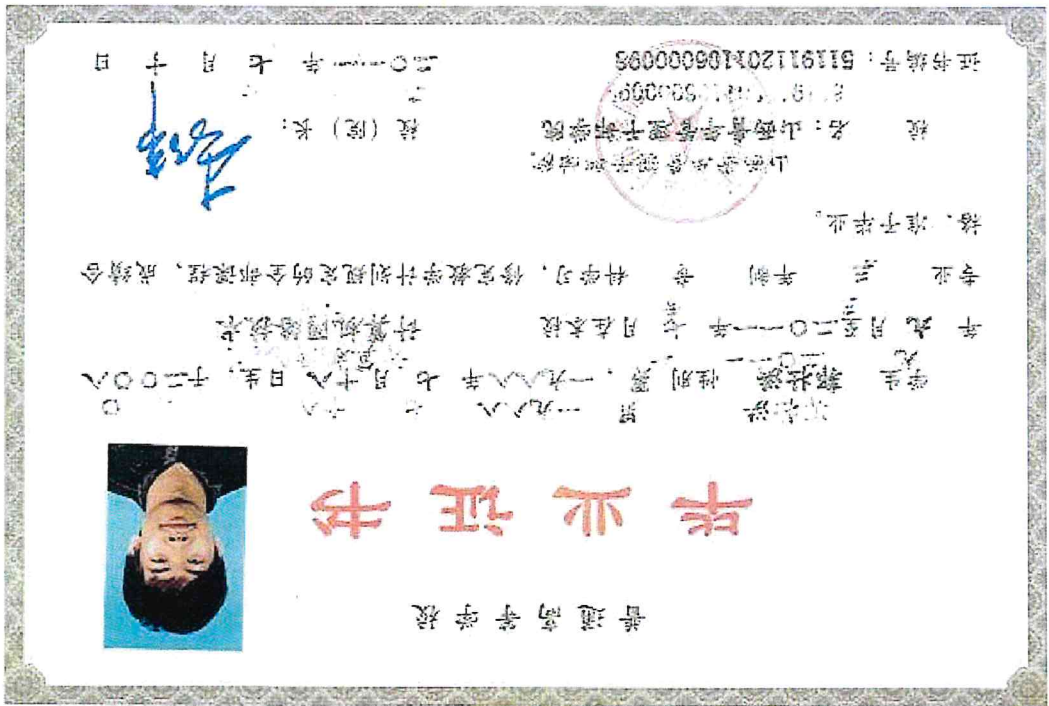 普通高等学校
毕业证书
学生 性别 男，一九八八年 七 月十八 日生，于二〇〇八
年 九 月至二〇一一年 七 月在本校 计算机网络技术
专业 三 年制 专 科学习，修完教学计划规定的全部课程，成绩合
格，准予毕业。
校 名：山西青年管理干部学院 校（院）长：
证书编号：511911201106000098 二〇一一年 七 月 十 日